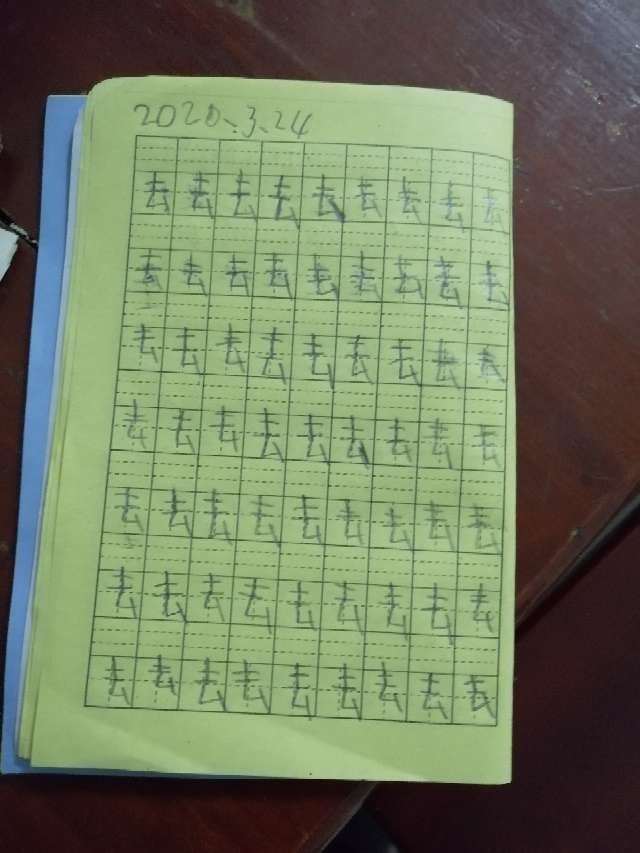 2020、3、24
去去去去去去去去去
去去去去去去去去去
去去去去去去去去去
去去去去去去去去去
去去去去去去去去去
去去去去去去去去去
去去去去去去去去去